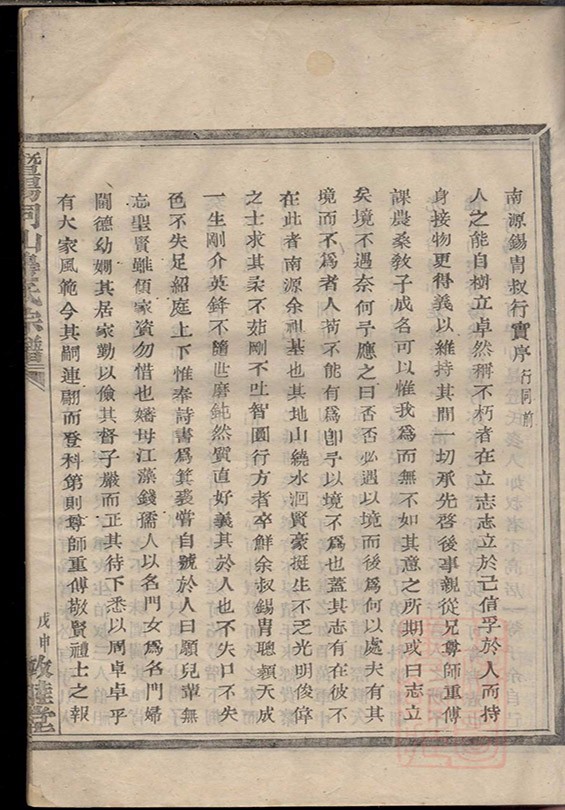 南源錫冑叔行實序行同前
人之能自樹立卓然稱不朽者在立志志立於己信乎於人而持
身接物更得義以維持其間一切承先啓後事親從兄尊師重傅
課農桑敎子成名可以惟我爲而無不如其意之所期或曰志立
矣境不遇奈何予應之曰否否必遇以境而後爲何以處夫有其
境而不爲者人苟不能有爲卽予以境不爲也蓋其志有在彼不
在此者南源余祖基也其地山繞水洄賢豪挺生不乏光明俊偉
之士求其柔不茹剛不吐智圓行方者卒鮮余叔錫冑聰穎天成
一生剛介英鋒不隨世磨鈍然質直好義其於人也不失口不失
色不失足紹庭上下惟奉詩書爲箕裘嘗自號於人曰願兒輩無
忘聖賢雖傾家資勿惜也嬸母江藻錢孺人以名門女爲名門婦
閫德幼嫻其居家勤以儉其督子嚴而正其待下悉以周卓卓乎
有大家風範今其嗣連翩而登科第則尊師重傅敬賢禮士之報
暨陽同山壽氏宗譜
戊申 敦睦堂